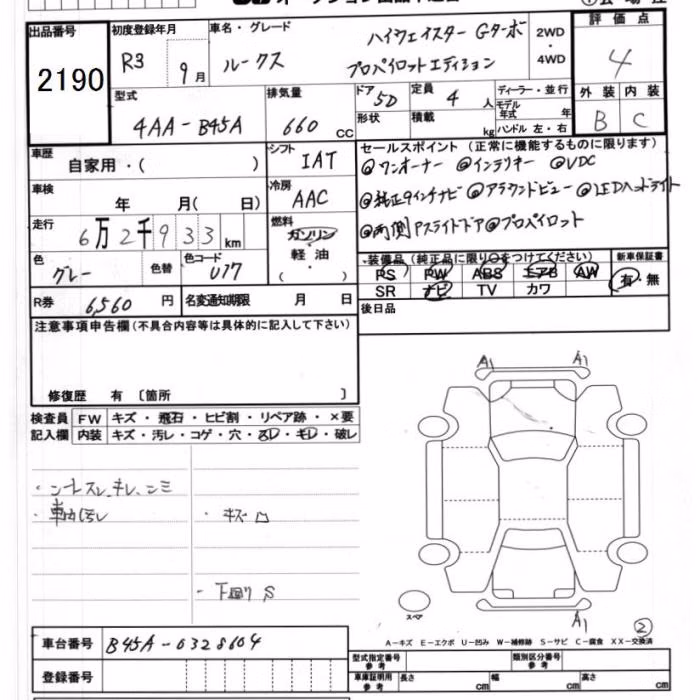 出品番号
2190
初度登録年月
R3 9月
車名・グレード
ルークス
ハイウェイスター Gターボ
プロパイロットエディション
2WD
・
4WD
評価点
4
外装 内装
B C
型式
4AA-B45A
排気量
660 CC
ドア 5D
形状
定員 4人
積載 kg
ディーラー・並行
モデル年式 年
ハンドル 左・右
車歴
自家用・( )
シフト
IAT
車検
年 月( 日)
冷房
AAC
走行
6万2千933km
燃料
ガソリン・
軽油・
( )
色
グレー
色替
色コード
U17
R券 6,560円
名変通知期限 月 日
セールスポイント(正常に機能するものに限ります)
@ワンオーナー @インテリキー @VDC
@純正9インチナビ @アラウンドビュー @LEDヘッドライト
@両側Pスライドドア @プロパイロット
装備品(純正品に限り○をつけてください)
PS PW ABS エアB AW
SR ナビ TV カワ
新車保証書
有・無
後日品
注意事項申告欄(不具合内容等は具体的に記入して下さい)
修復歴 有〔箇所 〕
検査員
記入欄
FW キズ・飛石・ヒビ割・リペア跡・×要
内装 キズ・汚レ・コゲ・穴・スレ・キレ・破レ
・シートスレ、キレ、シミ
・車内汚レ
・キズ
・下廻りS
A1 A1
A1
スペア
2
A-キズ E-エクボ U-凹み W-補修跡 S-サビ C-腐食 XX-交換済
車台番号
B45A-0328604
登録番号
型式指定番号
参考
類別区分番号
参考
車庫証明用
参考
長さ cm 幅 cm 高さ cm